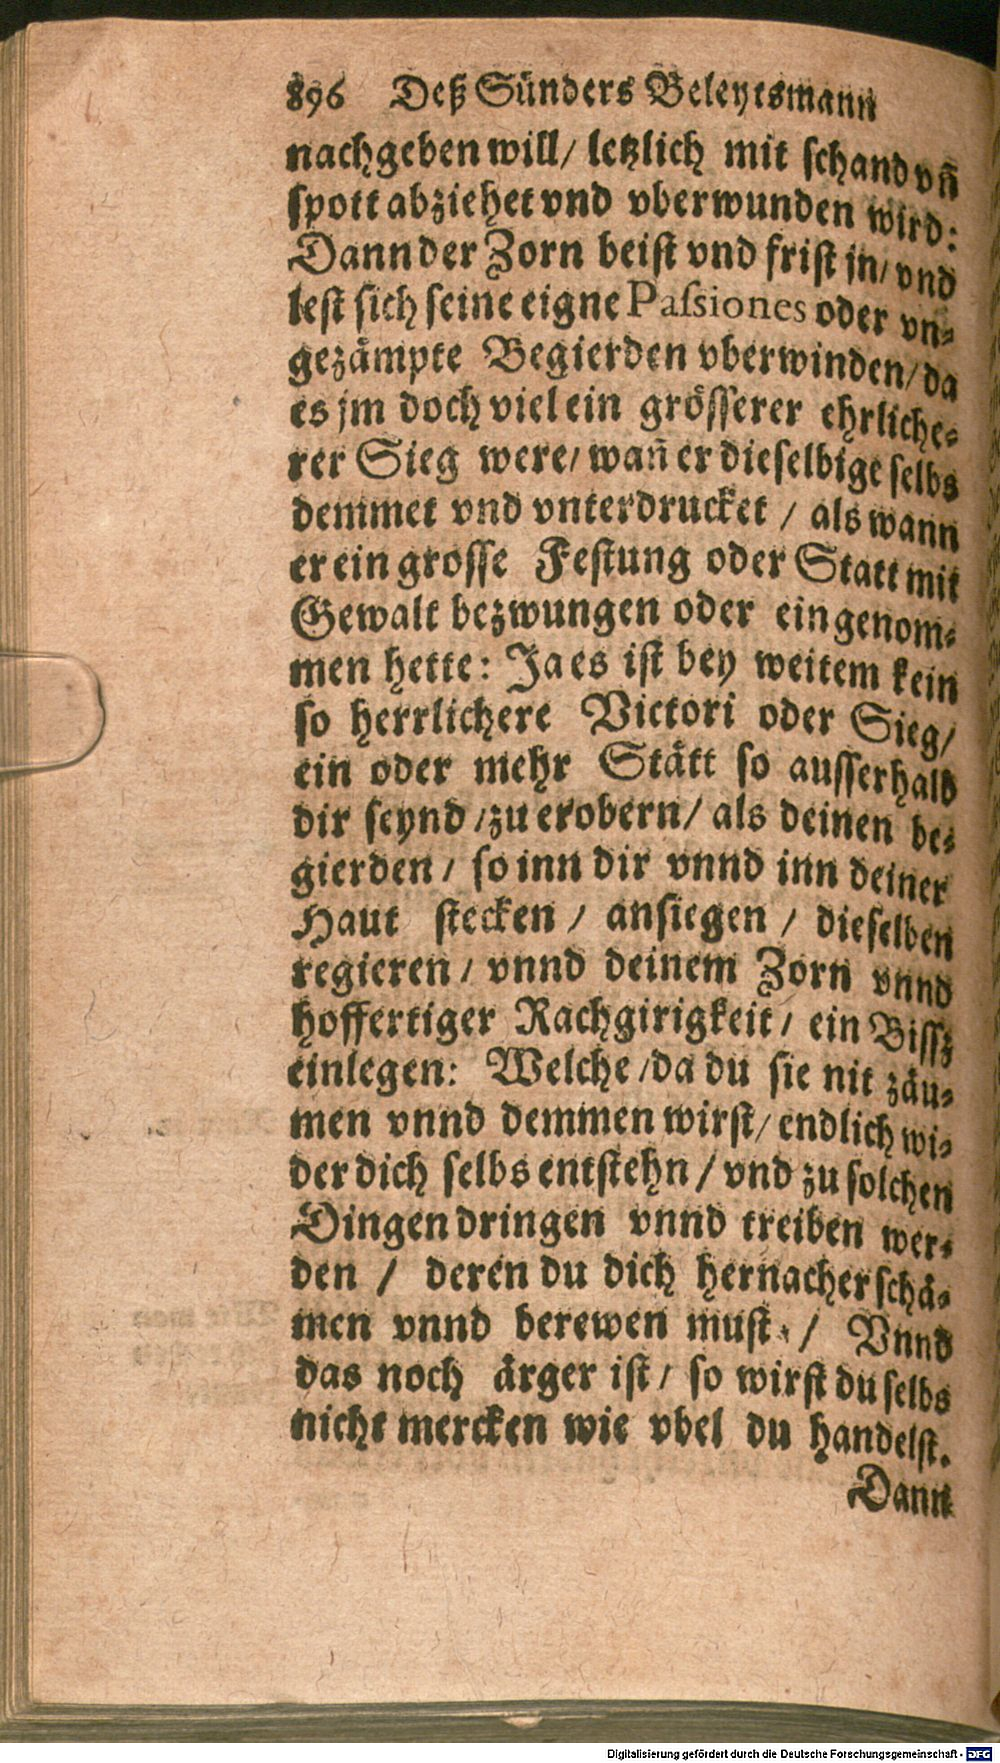 896 Deß Sünders Beleytsmann
nachgeben will/ letzlich mit schand vñ
spott abziehet vnd vberwunden wird:
Dann der Zorn beist vnd frist jn/ vnd
lest sich seine eigne Passiones oder vn-
gezämpte Begierden vberwinden/ da
es jm doch viel ein grösserer ehrliche-
rer Sieg were/ wañ er dieselbige selbs
demmet vnd vnterdrucket / als wann
er ein grosse Festung oder Statt mit
Gewalt bezwungen oder eingenom-
men hette: Ja es ist bey weitem kein
so herrlichere Victori oder Sieg/
ein oder mehr Stätt so ausserhalb
dir seynd / zu erobern/ als deinen be-
gierden / so inn dir vnnd inn deiner
Haut stecken / ansiegen / dieselben
regieren / vnnd deinem Zorn vnnd
hoffertiger Rachgirigkeit / ein Bissz
einlegen: Welche / da du sie nit zäu-
men vnnd demmen wirst/ endlich wi-
der dich selbs entstehn / vnd zu solchen
Dingen dringen vnnd treiben wer-
den / deren du dich hernacher schä-
men vnnd berewen must / Vnnd
das noch ärger ist / so wirst du selbs
nicht mercken wie vbel du handelst.
Dann
Digitalisierung gefördert durch die Deutsche Forschungsgemeinschaft - DFG